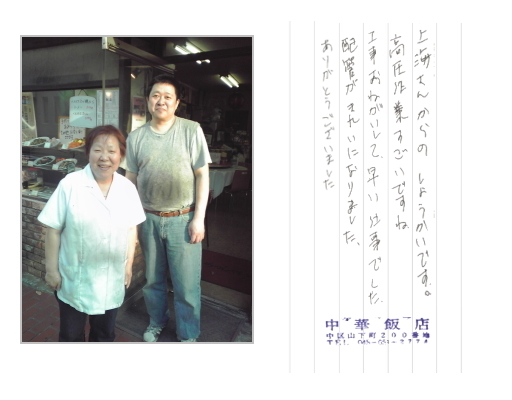 上海さんからのしょうかいです。
高圧作業すごいですね
工事おねがいして、早い仕事でした。
配管がきれいになりました、
ありがとうございました
中華飯店
中区山下町200番地